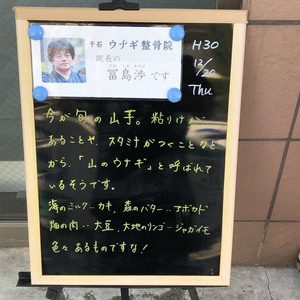 千石 ウナギ整骨院
院長の
冨島渉です
H30
12/20
Thu
今が旬の山芋。粘りけが
あることや、スタミナがつくことなど
から、「山のウナギ」と呼ばれて
いるそうです。
海のミルク…カキ、森のバター…アボカド
畑の肉…大豆、大地のリンゴ…ジャガイモ
色々あるものですな!